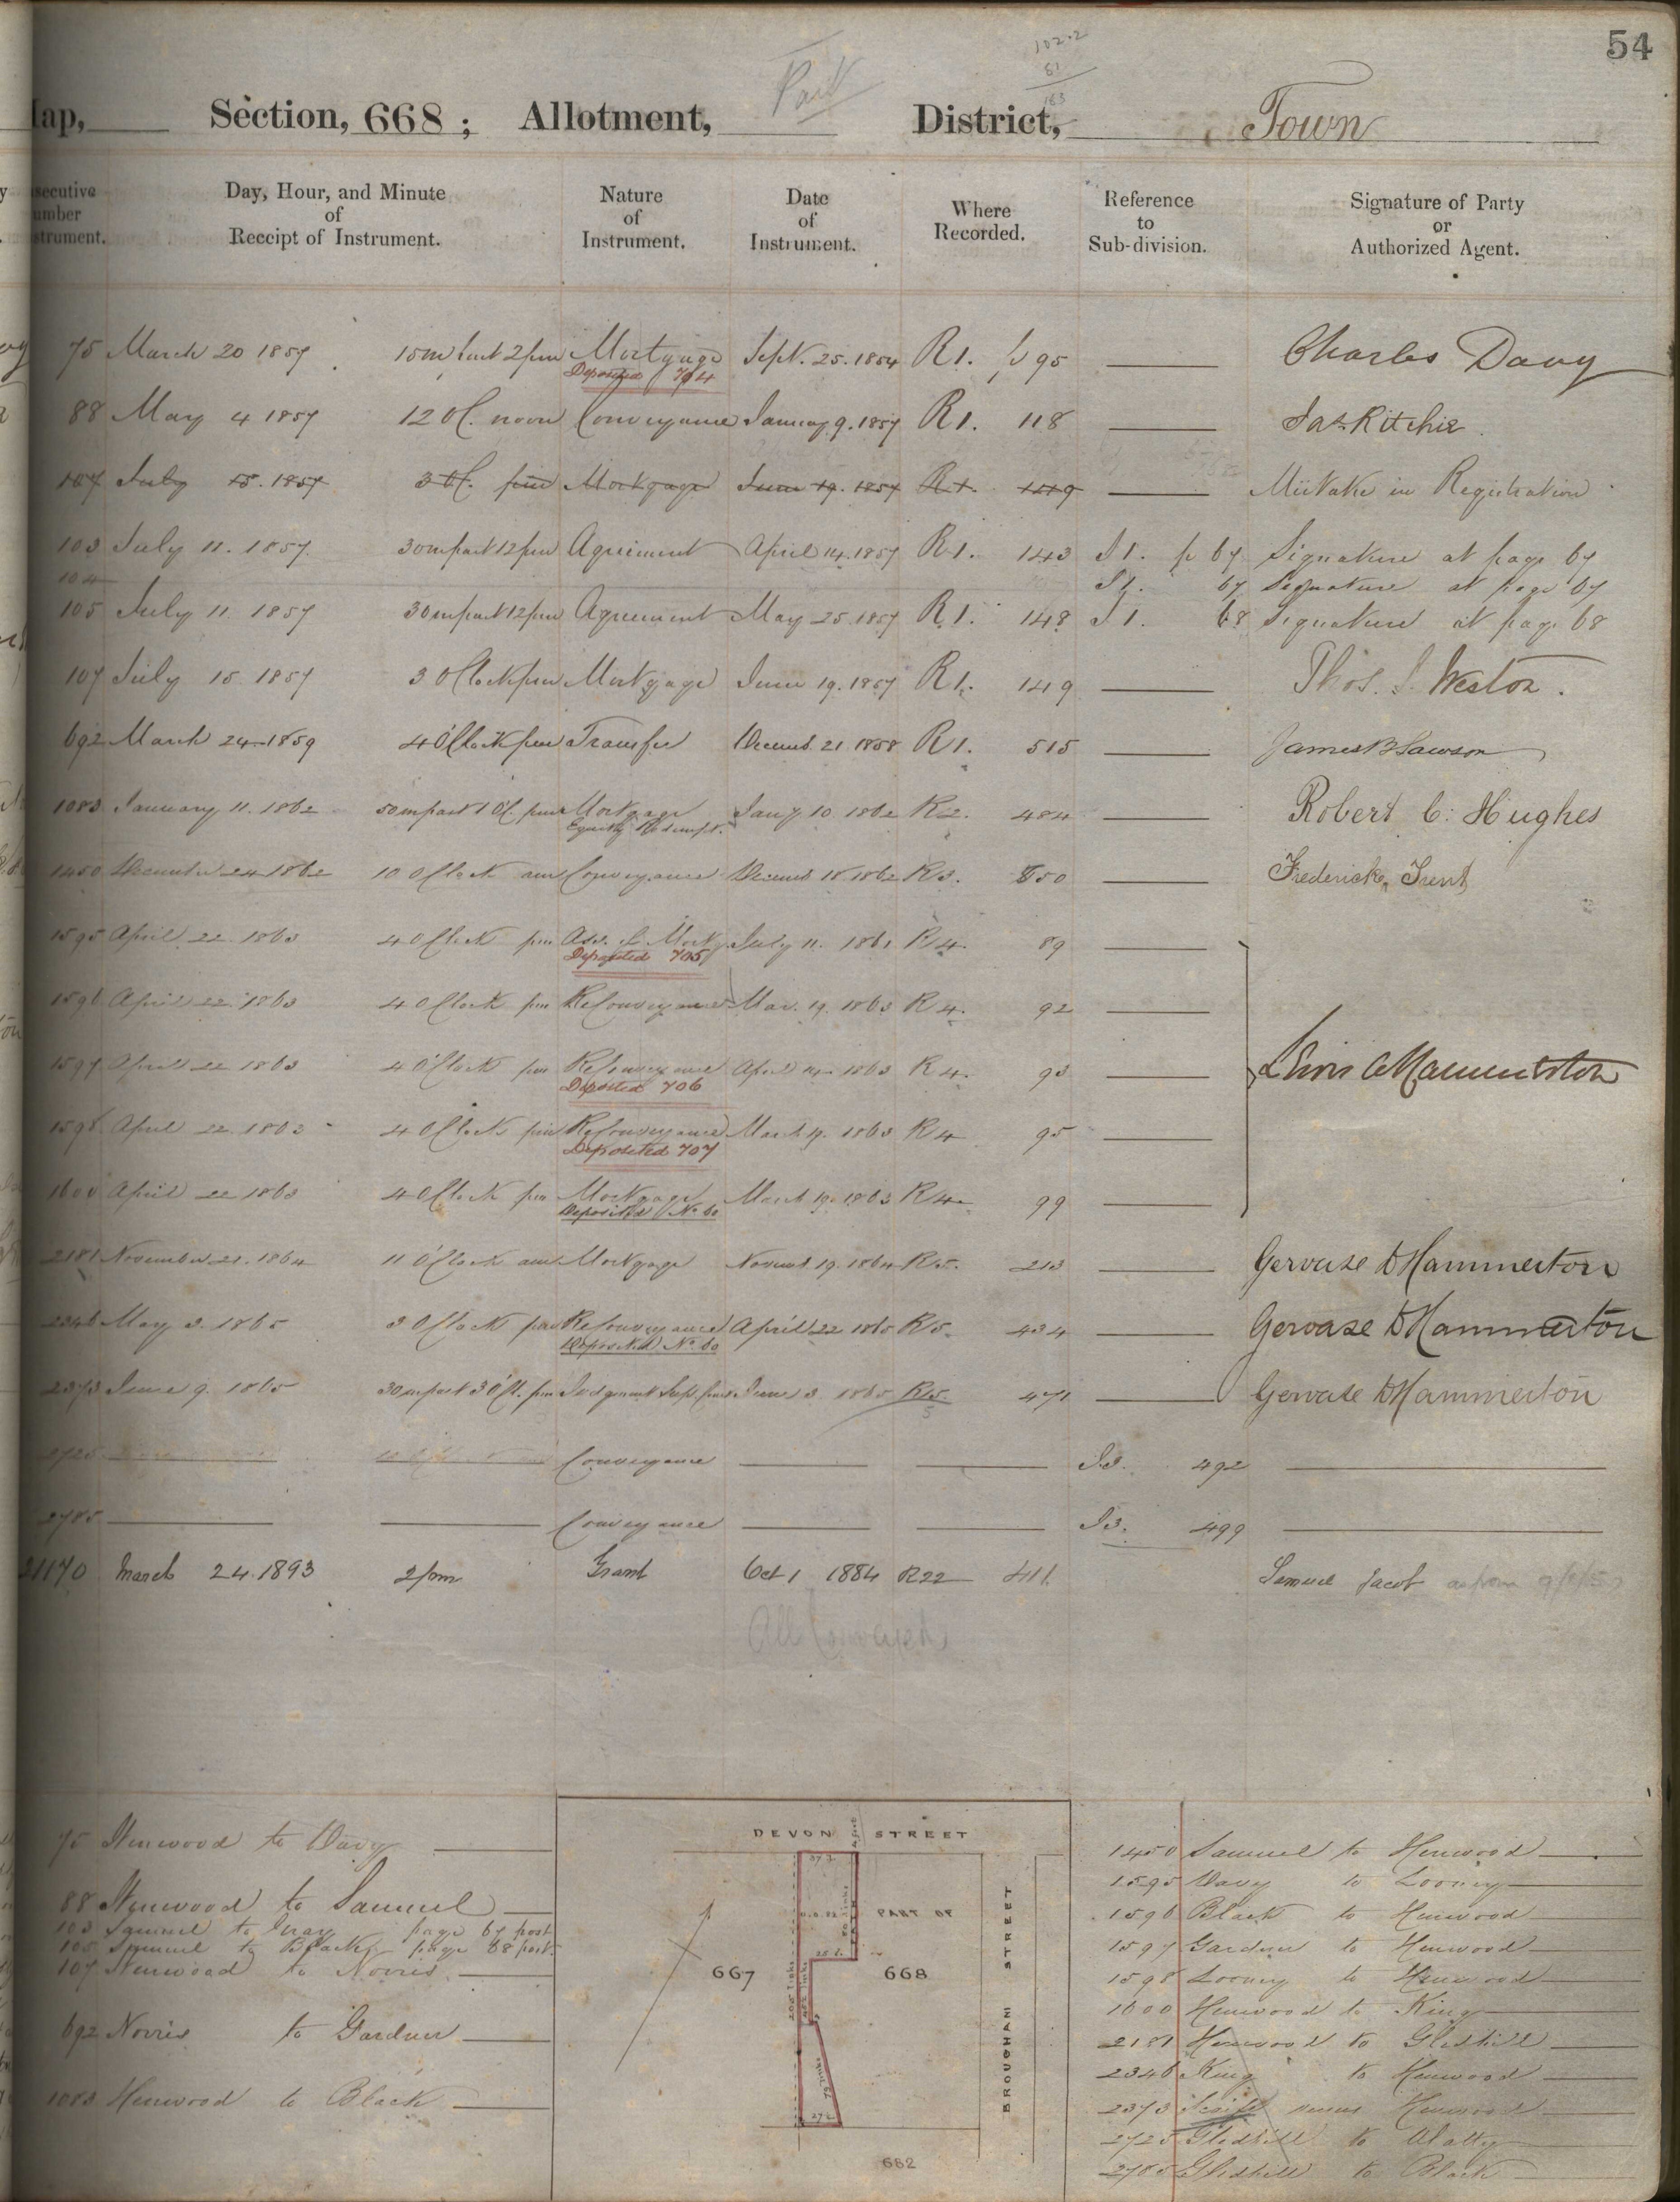 54
Part
102.2
81
183
Map, Section, 668; Allotment, District, Town
Consecutive Number Instrument.
Day, Hour, and Minute of Receipt of Instrument.
Nature of Instrument.
Date of Instrument.
Where Recorded.
Reference to Sub-division.
Signature of Party or Authorized Agent.
75 March 20 1857 15m past 2 pm Mortgage Sept. 25. 1854 R1. p 95 Charles Davy
Deposited 704
88 May 4 1857 12 Ol. noon Conveyance January 9. 1857 R1. 118 Jas Ritchie
107 July 15. 1857 3 Ol. pm Mortgage June 19. 1857 R1. 149 Mistake in Registration
103 July 11. 1857. 30m past 12 pm Agreement April 14. 1857 R1. 143 S1. p 67 Signature at page 67
104 S1. 67 Signature at page 67
105 July 11 1857 30m past 12 pm Agreement May 25 1857 R1. 148 S1. 68 Signature at page 68
107 July 15 1857 3 OClock pm Mortgage June 19. 1857 R1. 149 Thos. S. Weston.
692 March 24 1859 4 OClock pm Transfer Decemb. 21 1858 R1. 515 James B Lawson
1083 January 11. 1862 50m past 1 Ol. pm Mortgage Jany 10 1862 R2. 484 Robert C. Hughes
Equity Redempt.
1450 December 24 1862 10 OClock am Conveyance Decemb 18. 1862 R3. 850 Frederick Trent
1595 April 22. 1863 4 OClock pm Ass. of Mortg. July 11. 1861 R4. 89
Deposited 705
1596 April 22. 1863 4 OClock pm ReConveyance Mar. 19. 1863 R4. 92
1597 April 22 1863 4 OClock pm ReConveyance April 14. 1863 R4. 93
Deposited 706
1598 April 22. 1863 4 OClock pm ReConveyance March 19. 1863 R4 95
Deposited 707
1600 April 22 1863 4 OClock pm Mortgage March 19. 1863 R4. 99
Deposited No. 60
2181 November 21. 1864 11 OClock am Mortgage Novemb. 19. 1864 R5. 213 Gervase D Hammerton
2346 May 3. 1865 3 OClock pm ReConveyance April 22 1865 R5. 434 Gervase D Hammerton
Deposited No. 60
2373 June 9. 1865 30m past 3 Ol. pm Judgment Sup. Court June 3. 1865 R5. 471 Gervase D Hammerton
5
2725 Conveyance S3. 492
2785 Conveyance S3. 499
21170 March 24. 1893 2 pm Grant Oct 1 1884 R22 411 Samuel Jacob
All Conveyed
75 Henwood to Davy
88 Henwood to Samuel
103 Samuel to Gray page 67 post
105 Samuel to Black page 68 post
107 Henwood to Norris
692 Norris to Gardner
1083 Henwood to Black
DEVON STREET
PART OF
667
668
BROUGHAM STREET
682
1450 Samuel to Henwood
1595 Davy to Looney
1596 Black to Henwood
1597 Gardner to Henwood
1598 Looney to Henwood
1600 Henwood to King
2181 Henwood to Gledhill
2346 King to Henwood
2373 versus Henwood
2725 Gledhill to
2785 Gledhill to Black